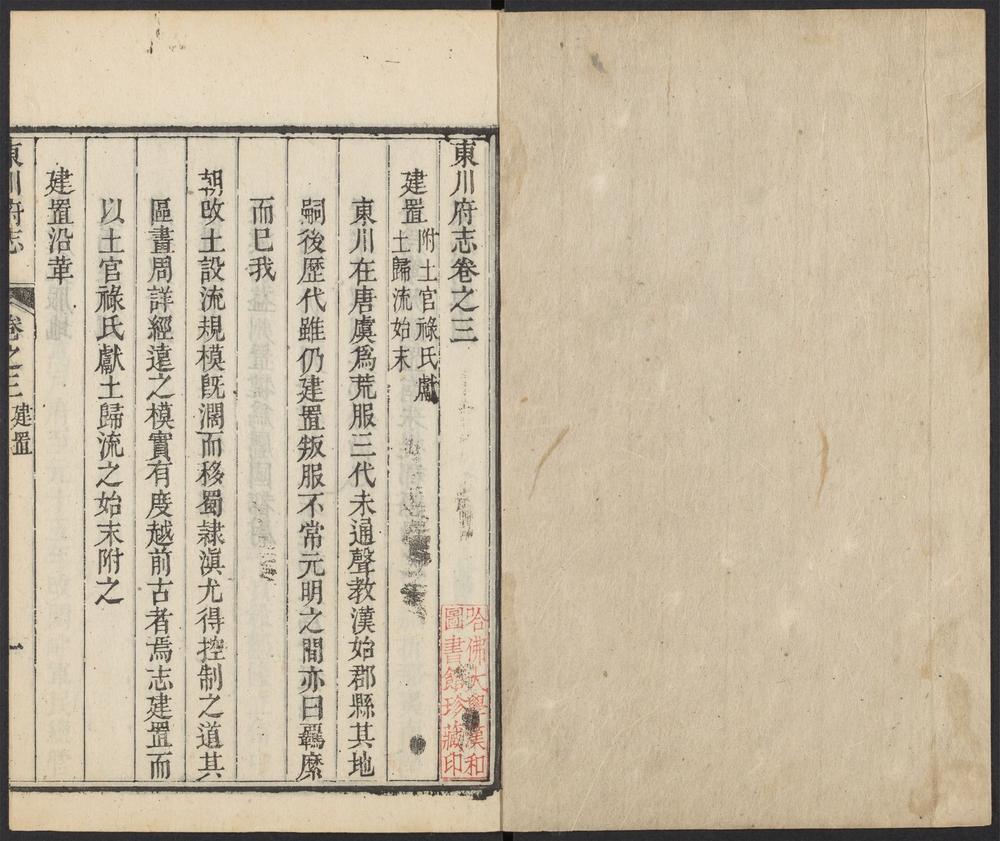 東川府志卷之三
建置附土官祿氏獻
土歸流始末
東川在唐虞爲荒服三代未通聲教漢始郡縣其地
嗣後歴代雖仍建置叛服不常元明之間亦曰羈縻
而已我
朝改土設流規模旣濶而移蜀隷滇尤得控制之道其
區畫周詳經遠之模實有度越前古者焉志建置而
以土官祿氏獻土歸流之始末附之
建置沿革
東川府志
卷之三
建置
一
哈佛大學漢和
圖書館珍藏印